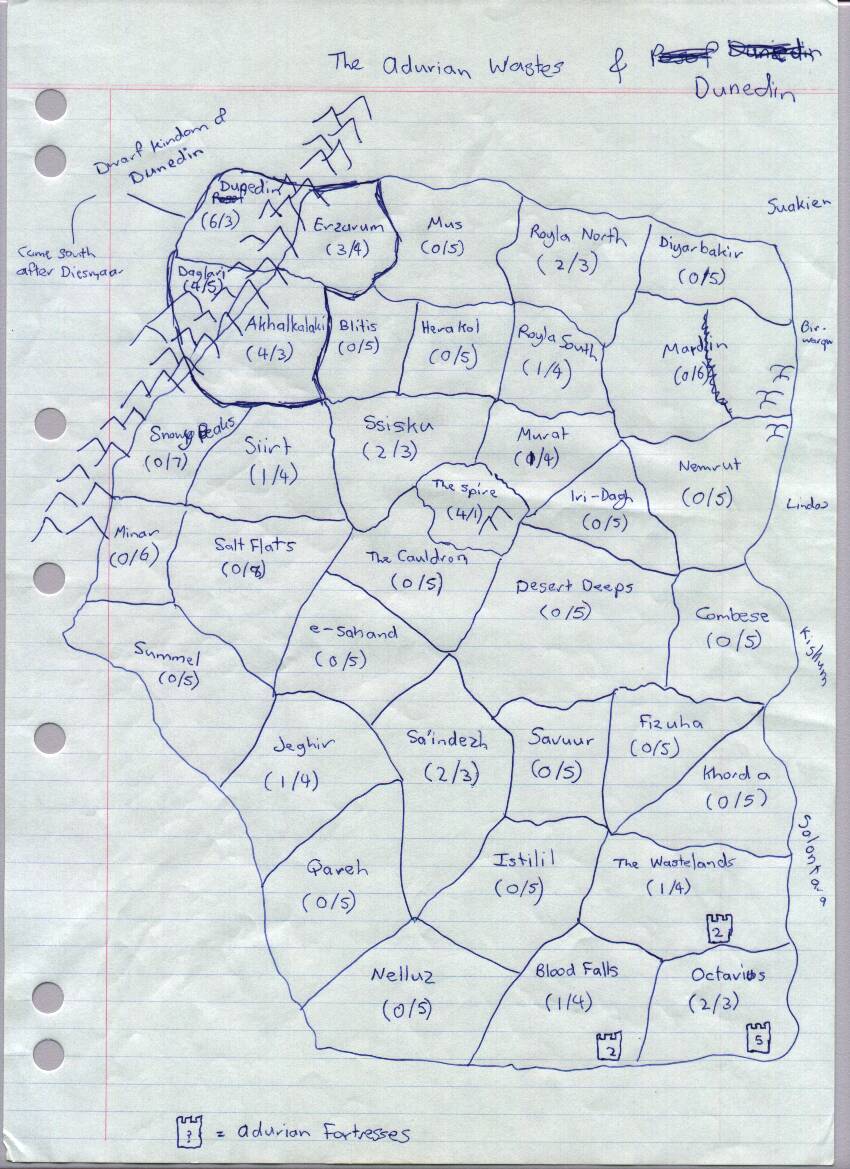 The Adurian Wastes &
Dunedin
Dwarf Kindom of
Dunedin
Came south
after Diesmaar
Dunedin
(6/3)
Erzurum
(3/4)
Mus
(0/5)
Royla North
(2/3)
Diyarbakir
(0/5)
Suakien
Daglari
(4/5)
Akhalkalaki
(4/3)
Blitis
(0/5)
Herakol
(0/5)
Royla South
(1/4)
Mardin
(0/6)
Snowy Peaks
(0/7)
Siirt
(1/4)
Ssisku
(2/3)
Murat
Nemrut
(0/5)
The Spire
(4/1)
Iri-Dagh
(0/5)
Lindow
Minar
(0/6)
Salt Flats
(0/8)
The Cauldron
(0/5)
Desert Deeps
(0/5)
Combese
(0/5)
Kishum
Summel
(0/5)
e-Sahand
(0/5)
Jeghir
(1/4)
Sa'indezh
(2/3)
Savuur
(0/5)
Fizuha
(0/5)
Khorda
(0/5)
Qareh
(0/5)
Istilil
(0/5)
The Wastelands
(1/4)
2
Nelluz
(0/5)
Blood Falls
(1/4)
2
Octavius
(2/3)
5
? = Adurian Fortresses